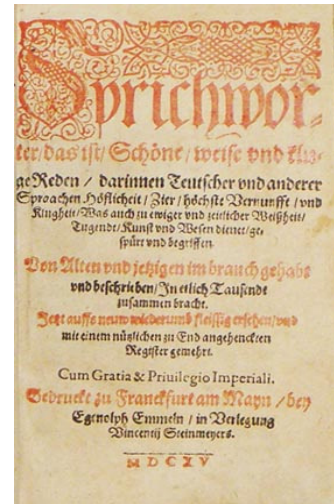 Sprichwör-
ter / das ist / Schöne / weise vnd klu-
ge Reden / darinnen Teutscher vnd anderer
Spraachen Höflicheit / Zier / höchste Vernunfft / vnd
Klugheit / Was auch zu ewiger vnd zeitlicher Weißheit /
Tugendt / Kunst vnd Wesen dienet / ge-
spürt vnd begriffen.
Von Alten vnd jetzigen im brauch gehabt
vnd beschrieben / In etlich Tausendt
zusammen bracht.
Jetzt auffs neuw widerumb fleissig ersehen / vnd
mit einem nützlichen zu End angehenckten
Register gemehrt.
Cum Gratia & Priuilegio Imperiali.
Gedruckt zu Franckfurt am Mayn / bey
Egenolph Emmeln / in Verlegung
Vincentij Steinmeyers.
MDCXV